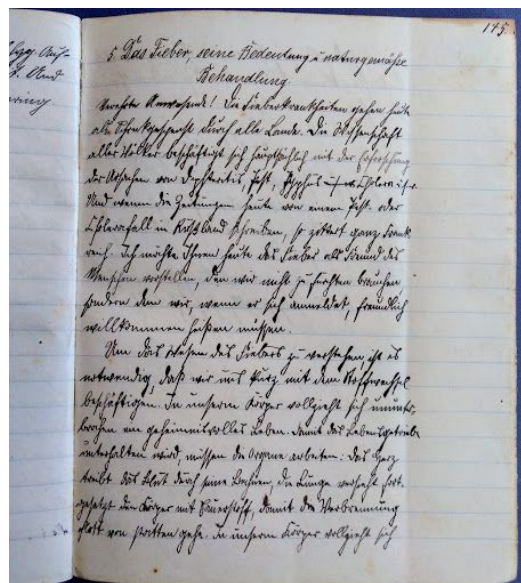 145.
5. Das Fieber, seine Bedeutung u. naturgemäße
Behandlung
Verehrte Anwesende! Die Fieberkrankheiten gehen heute
als Schreckgespenst durch alle Lande. Die Wissenschaft
aller Völker beschäftigt sich hauptsächlich mit der Erforschung
der Ursachen von Dyphteritis, Pest, Typhus Cholera
Und wenn die Zeitungen heute von einem Pest- oder
Cholerafall in Rußland schreiben, so zittert ganz Frank
reich. Ich möchte Ihnen heute das Fieber als Freund des
Menschen vorstellen, den wir nicht zu fürchten brauchen
sondern den wir, wenn er sich anmeldet, freundlich
willkommen heißen müssen.
Um das Wesen des Fiebers zu verstehen ist es
notwendig, daß wir uns kurz mit dem Stoffwechsel
beschäftigen. In unserm Körper vollzieht sich ununter-
brochen ein geheimnisvolles Leben. Damit das Lebensgetriebe
unterhalten wird, müssen die Organe arbeiten: Das Herz
treibt das Blut durch seine Bahnen, die Lunge versieht fort-
gesetzt den Körper mit Sauerstoff, damit die Verbrennung
glatt von statten gehe. In unserm Körper vollzieht sich